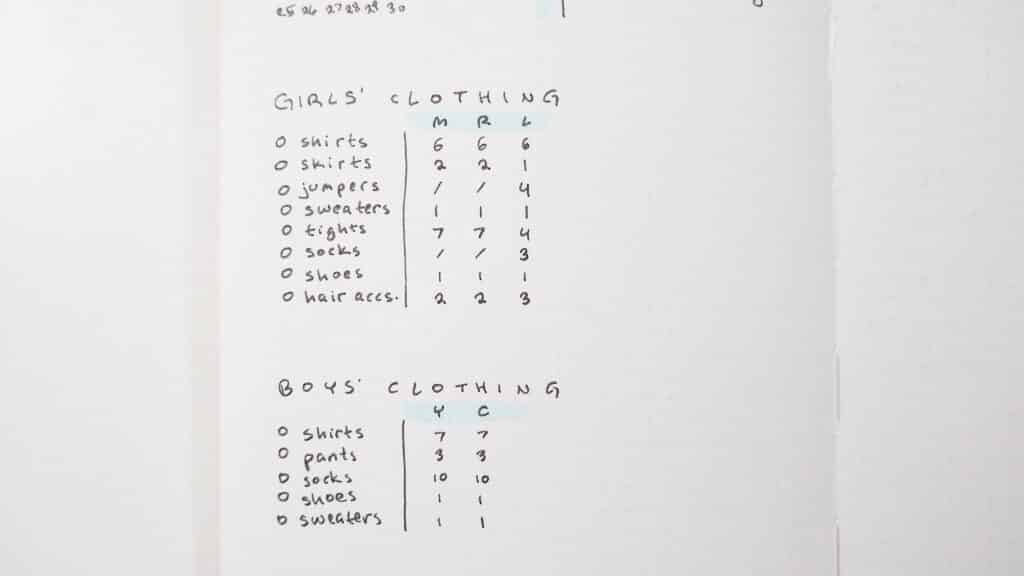 25 26 27 28 29 30
GIRLS' CLOTHING
M R L
O shirts 6 6 6
O skirts 2 2 1
O jumpers / / 4
O sweaters 1 1 1
O tights 7 7 4
O socks / / 3
O shoes 1 1 1
O hair accs. 2 2 3
BOYS' CLOTHING
Y C
O shirts 7 7
O pants 3 3
O socks 10 10
O shoes 1 1
O sweaters 1 1